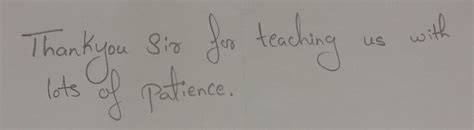 Thankyou Sir for teaching us with
lots of patience.